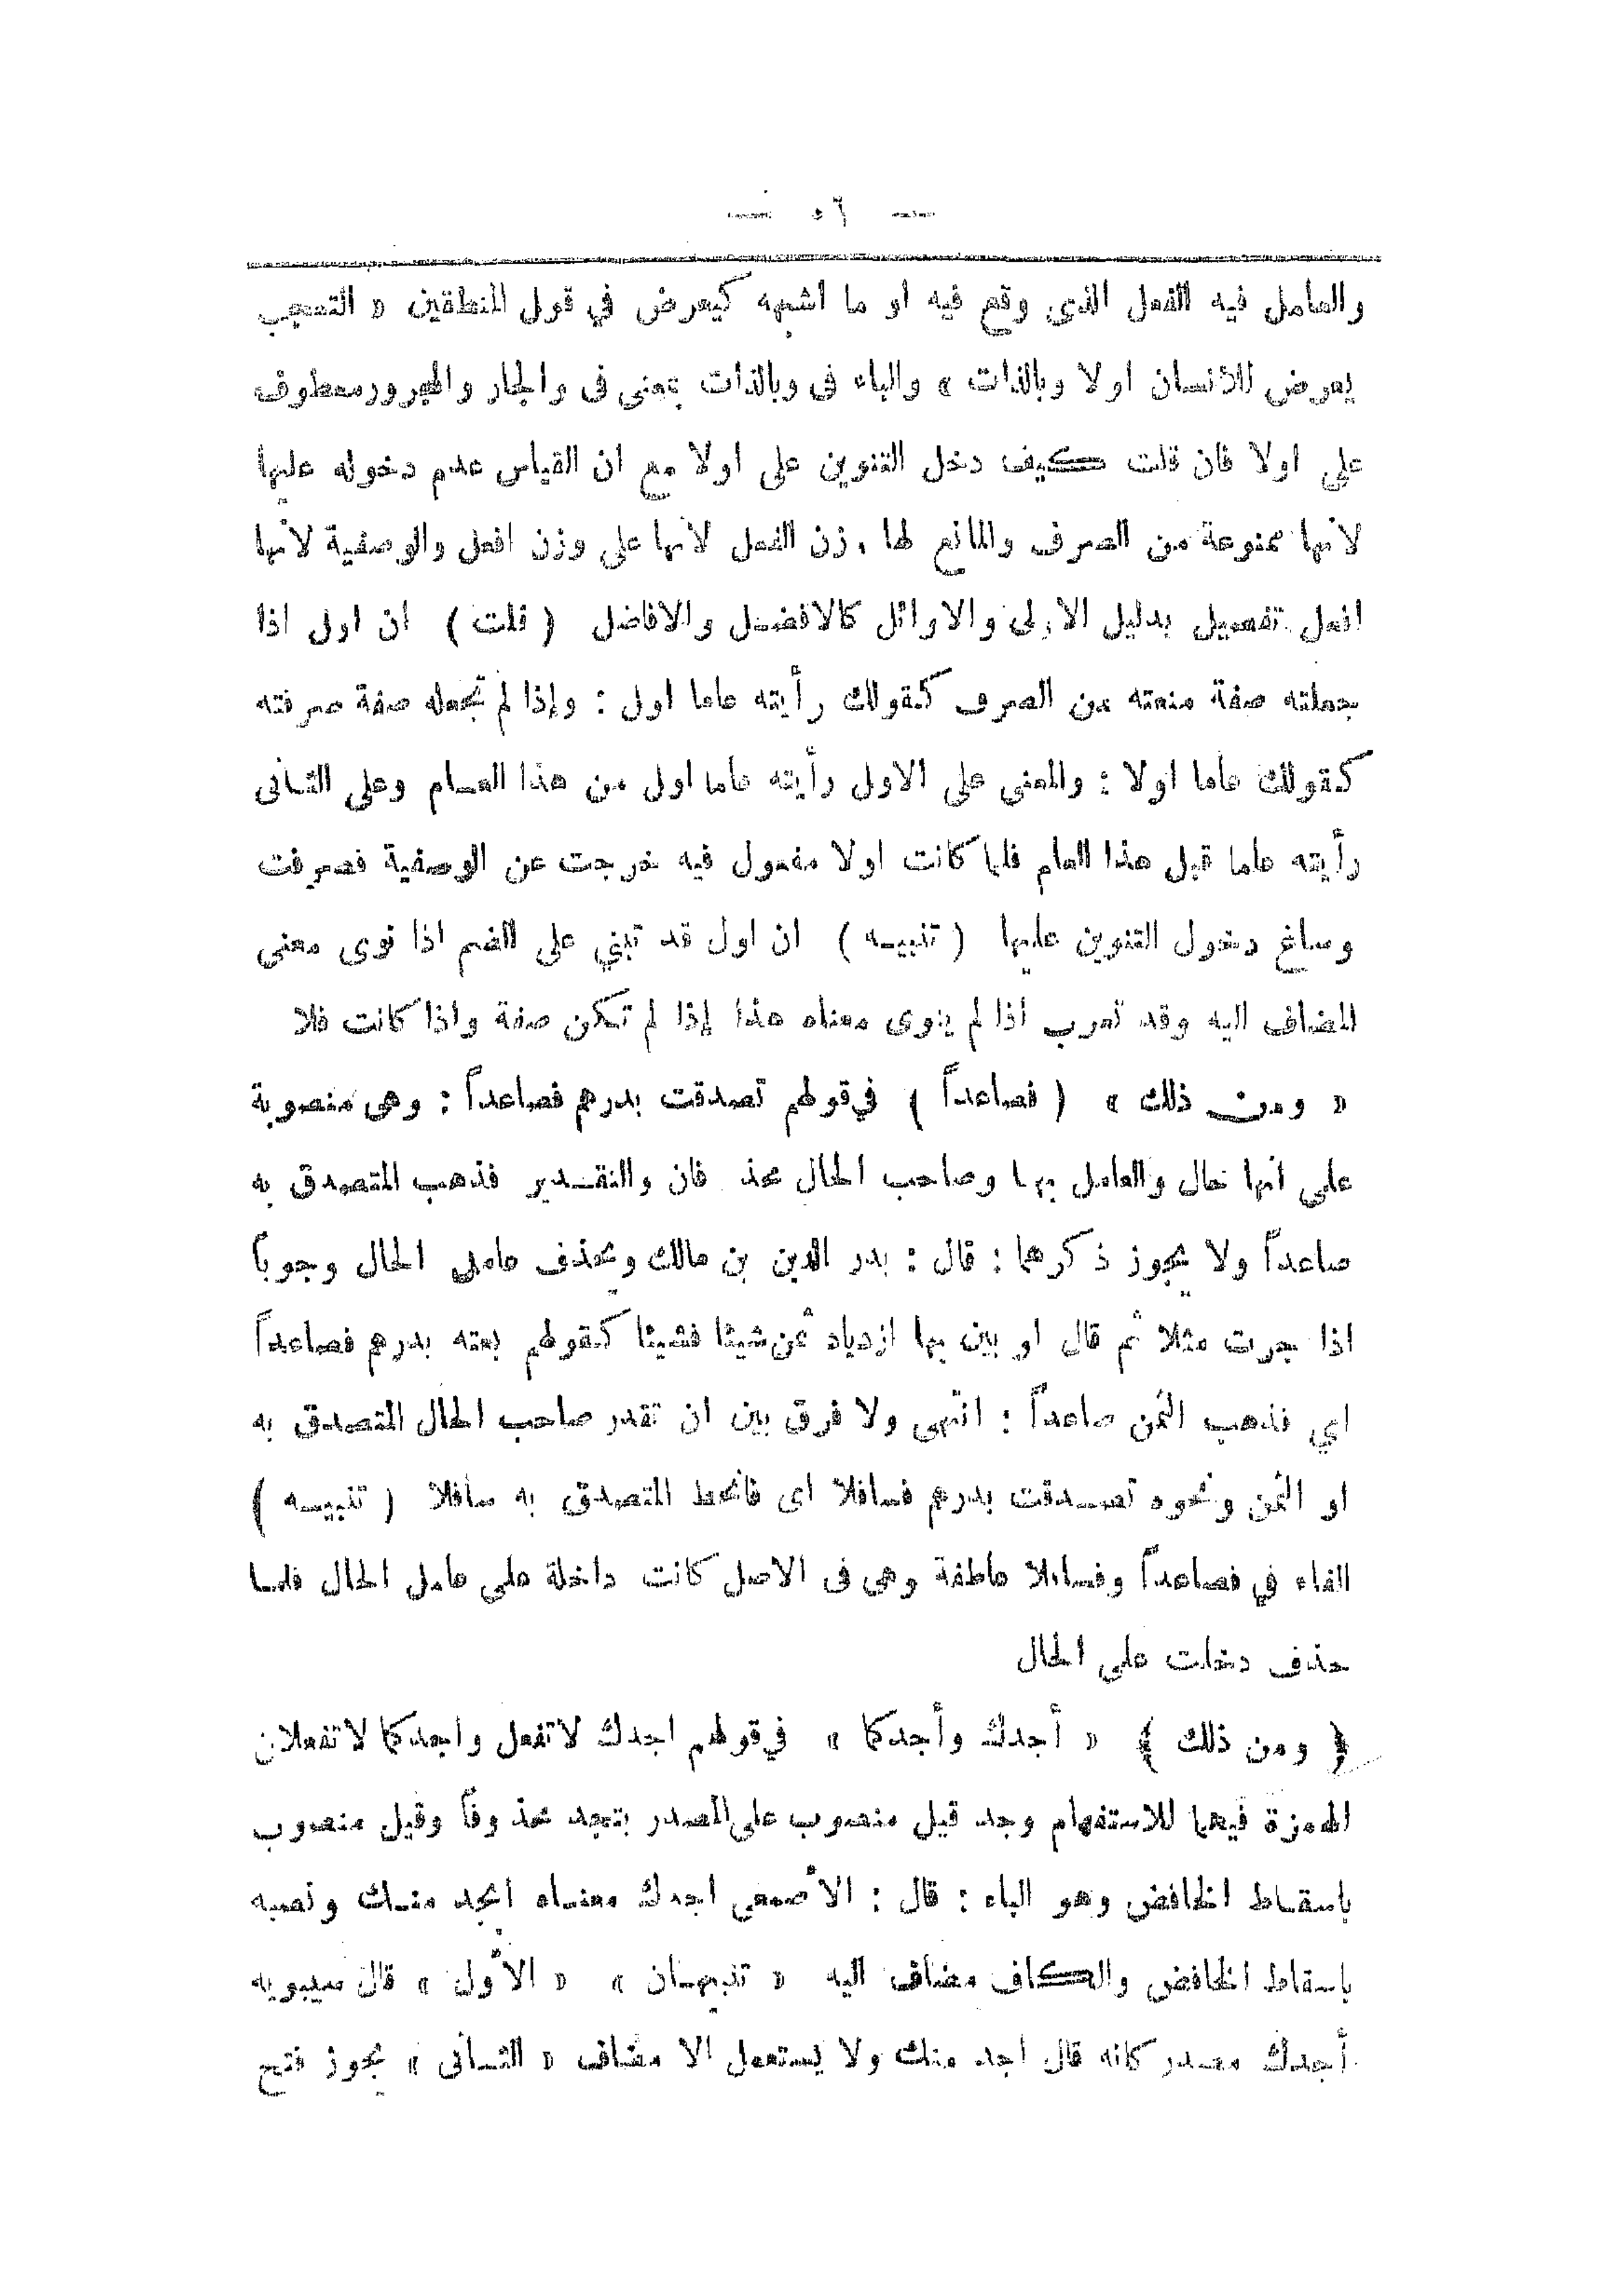 — ٥٦ —
والعامل فيه الفعل الذي وقع فيه او ما اشبهه كيعرض في قول المنطقين « التعجب
يعرض للأنسان اولا وبالذات » والباء فى وبالذات بمعنى فى والجار والمجرور معطوف
على اولا فان قلت كيف دخل التنوين على اولا مع ان القياس عدم دخوله عليها
لانها ممنوعة من الصرف والمانع لها وزن الفعل لانها على وزن افعل والوصفية لأنها
افعل تفصيل بدليل الاولى والاوائل كالافضل والافاضل ( قلت ) ان اول اذا
جعلته صفة منعته من الصرف كقولك رأيته عاما اول : وإذا لم تجعله صفة صرفته
كقولك عاما اولا : والمعنى على الاول رأيته عاما اول من هذا العام وعلى الثانى
رأيته عاما قبل هذا العام فلما كانت اولا مفعول فيه خرجت عن الوصفية فصرفت
وساغ دخول التنوين عليها ( تنبيه ) ان اول قد تبني على الضم اذا نوى معنى
المضاف اليه وقد تعرب اذا لم ينوى معناه هذا إذا لم تكن صفة واذا كانت فلا
« ومن ذلك » ( فصاعداً ) في قولهم تصدقت بدرهم فصاعداً : وهى منصوبة
على انها حال والعامل بها وصاحب الحال محذ فان والتقدير فذهب المتصدق به
صاعداً ولا يجوز ذكرهما : قال : بدر الدين بن مالك ويحذف عامل الحال وجوباً
اذا جرت مثلا ثم قال او بين بها ازدياد ثمن شيئا فشيئا كقولهم بعته بدرهم فصاعداً
اي فذهب الثمن صاعداً : انتهى ولا فرق بين ان تقدر صاحب الحال المتصدق به
او الثمن ونحوه تصدقت بدرهم فسافلا اى فانحط المتصدق به سافلا ( تنبيه )
الفاء في فصاعداً وفسافلا عاطفة وهى فى الاصل كانت داخلة على عامل الحال فلما
حذف دخلت على الحال
﴿ ومن ذلك ﴾ « أجدك وأجدكما » في قولهم اجدك لا تفعل واجدكما لا تفعلان
الهمزة فيهما للاستفهام وجد قيل منصوب على المصدر بتجد محذوفاً وقيل منصوب
باسقاط الخافض وهو الباء : قال : الأصمعى اجدك معناه ابجد منك ونصبه
باسقاط الخافض والكاف مضاف اليه « تنبيهان » « الأول » قال سيبويه
أجدك مصدر كانه قال اجد منك ولا يستعمل الا مضاف « الثانى » يجوز فتح